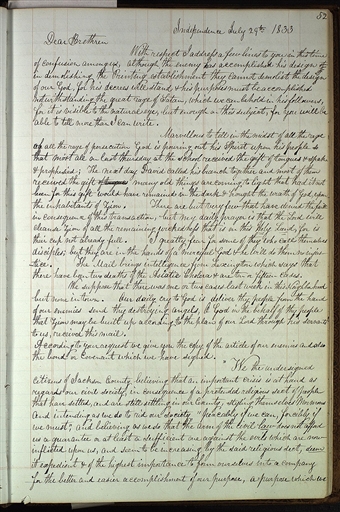 52
Independence July 29th 1833
Dear Brethren
With respect I address a few lines to you in this time
of confusion amongst, although the enemy has accomplish his design
in demolishing the Printing establishment they cannot demolish the design
of our God, for his decree will stand & his purposes must be accomplished
notwithstanding the great rage of Satan, which we can behold in his followers,
for it is visible to the natural eye, but enough on this subject, for you will be
able to tell more than I can write.
Marvellous to tell in the midst of all the rage
of persecution God is pouring out his Spirit upon his people so
that most all on last thursday at the school received the gift of tongues & spake
& prophesied; The next day David called his branch together and most of them
received the gift many old things are coming to light that had it not
been for this gift would have remained in the dark & brought the wrath of God upon
the inhabitants of Zion. There are but very few that have denied the faith
in consequence of this transaction, but my daily prayer is that the Lord will
cleanse Zion of all the remaining wickedness that is on this Holy Land, for is
their cup not already full. I greatly fear for some of they who call themselves
disciples, but they are in the hands of a merciful God & he will do them no
The Mail brings intelligence from Lexington which says that
there have been two deaths of the Asiatic Cholera & are ten or fifteen cases.
We suppose that there was one or two cases last week in this Neighborhood
but none in town. Our daily cry to God is deliver thy people from the hand
of our enemies send thy destroying angels, O God in the behalf of thy people
that Zion may be built up according to the plan of our Lord through his servant
to us, received this mail.
According to your request we give you the copy of the article of our enemies and also
the bond or Covenant which we have signed.
"We the undersigned
citizens of Jackson County, believing that an important crisis is at hand as
regards our civil society, in consequence of a pretended religious sect of people
that have settled, and are still settling in our County, styling themselves Mormons
And intending as we do to rid our Society "peacibly if we can, forcibly if
we must", and believing as we do that the arm of the civil law does not afford
us a guarantee or at least a sufficient one against the evils which are now
inflicted upon us, and seem to be increasing by the said religious sect, deem
it expedient & of the highest importance to form ourselves into a company
for the better and easier accomplishment of our purpose, a purpose which we